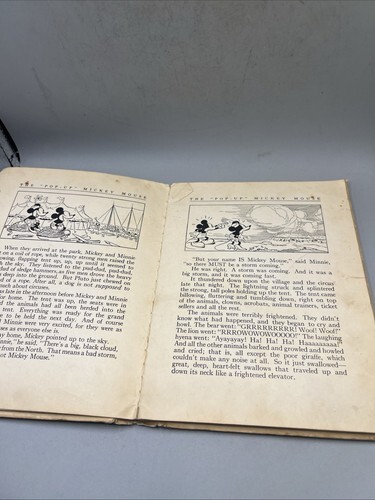 THE "POP-UP" MICKEY MOUSE
When they arrived at the park, Mickey and Minnie
on a coil of rope, while twenty strong men raised the
owing, flapping tent up, up, up until it seemed to
ch the sky. They listened to the pud-dad, pud-dad,
dad of sledge hammers, as five men drove the heavy
s deep into the ground. But Pluto just chewed on
d of a rope. After all, a dog is not supposed to
much about circuses.
as late in the afternoon before Mickey and Minnie
for home. The tent was up, the seats were in
nd the animals had all been herded into the
tent. Everything was ready for the grand
to be held the next day. And of course
Minnie were very excited, for they were as
cus as everyone else is.
ay home, Mickey pointed up to the sky.
nnie," he said. "There's a big, black cloud,
from the North. That means a bad storm,
not Mickey Mouse."
THE "POP-UP" MICKEY MOUSE
"But your name IS Mickey Mouse," said Minnie,
"so there MUST be a storm coming."
He was right. A storm was coming. And it was a
big storm, and it was coming fast.
It thundered down upon the village and the circus
late that night. The lightning struck and splintered
the strong, tall poles holding up the tent. The tent came
billowing, fluttering and tumbling down, right on top
of the animals, clowns, acrobats, animal trainers, ticket
sellers and all the rest.
The animals were terribly frightened. They didn't
know what had happened, and they began to cry and
howl. The bear went: "GRRRRRRRRR! Woof! Woof!"
The lion went: "RRROWROWOOOOO!" The laughing
hyena went: "Ayayayay! Ha! Ha! Ha! Haaaaaaaa!"
And all the other animals barked and growled and howled
and cried; that is, all except the poor giraffe, which
couldn't make any noise at all. So it just swallowed—
great, deep, heart-felt swallows that traveled up and
down its neck like a frightened elevator.